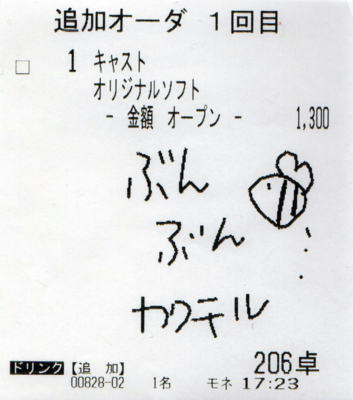 追加オーダ 1回目
□ 1 キャスト
オリジナルソフト
- 金額 オープン - 1,300
ぶん
ぶん
カクテル
ドリンク【追 加】 206卓
00828-02 1名 モネ 17:23